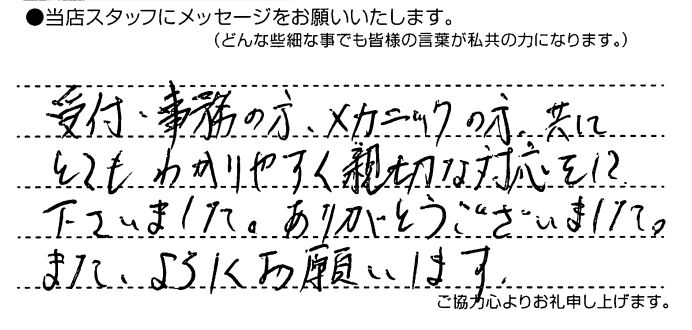 ●当店スタッフにメッセージをお願いいたします。
（どんな些細な事でも皆様の言葉が私共の力になります。）
受付・事務の方、メカニックの方、共に
とてもわかりやすく親切な対応をして
下さいました。ありがとうございました。
また、よろしくお願いします。
ご協力心よりお礼申し上げます。